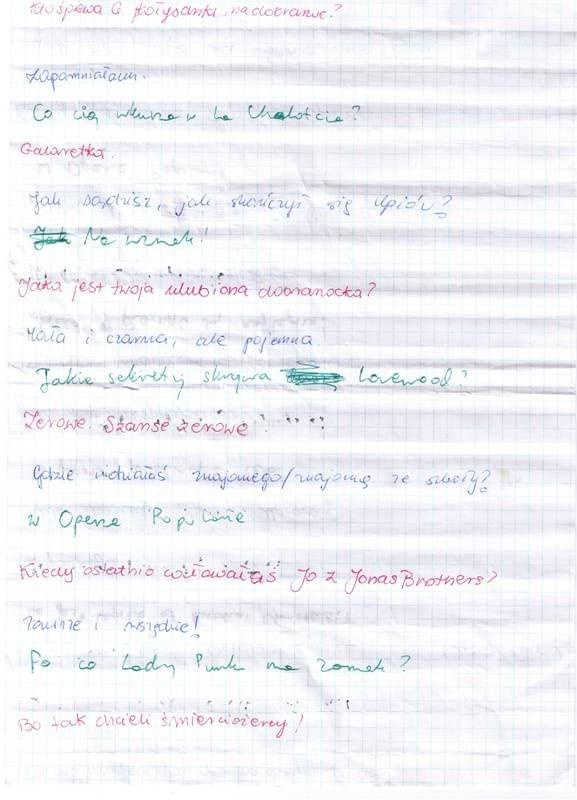 Kto śpiewa Ci kołysanki na dobranoc?
Zapomniałam.
Co cię wkurza w La Chalotcie?
Galaretka.
Jak sądzisz, jak skończył się Upiór?
Na wznak!
Jaka jest twoja ulubiona dobranocka?
Mała i czarna, ale pojemna.
Jakie sekrety skrywa Lovewood?
Zerowe. Szanse zerowe!
Gdzie widziałaś znajomego/znajomą ze szkoły?
W Operze Populaire
Kiedy ostatnio całowałaś Jo z Jonas Brothers?
Zawsze i wszędzie!
Po co Lady Punk ma zamek?
Bo tak chcieli śmierciożercy!